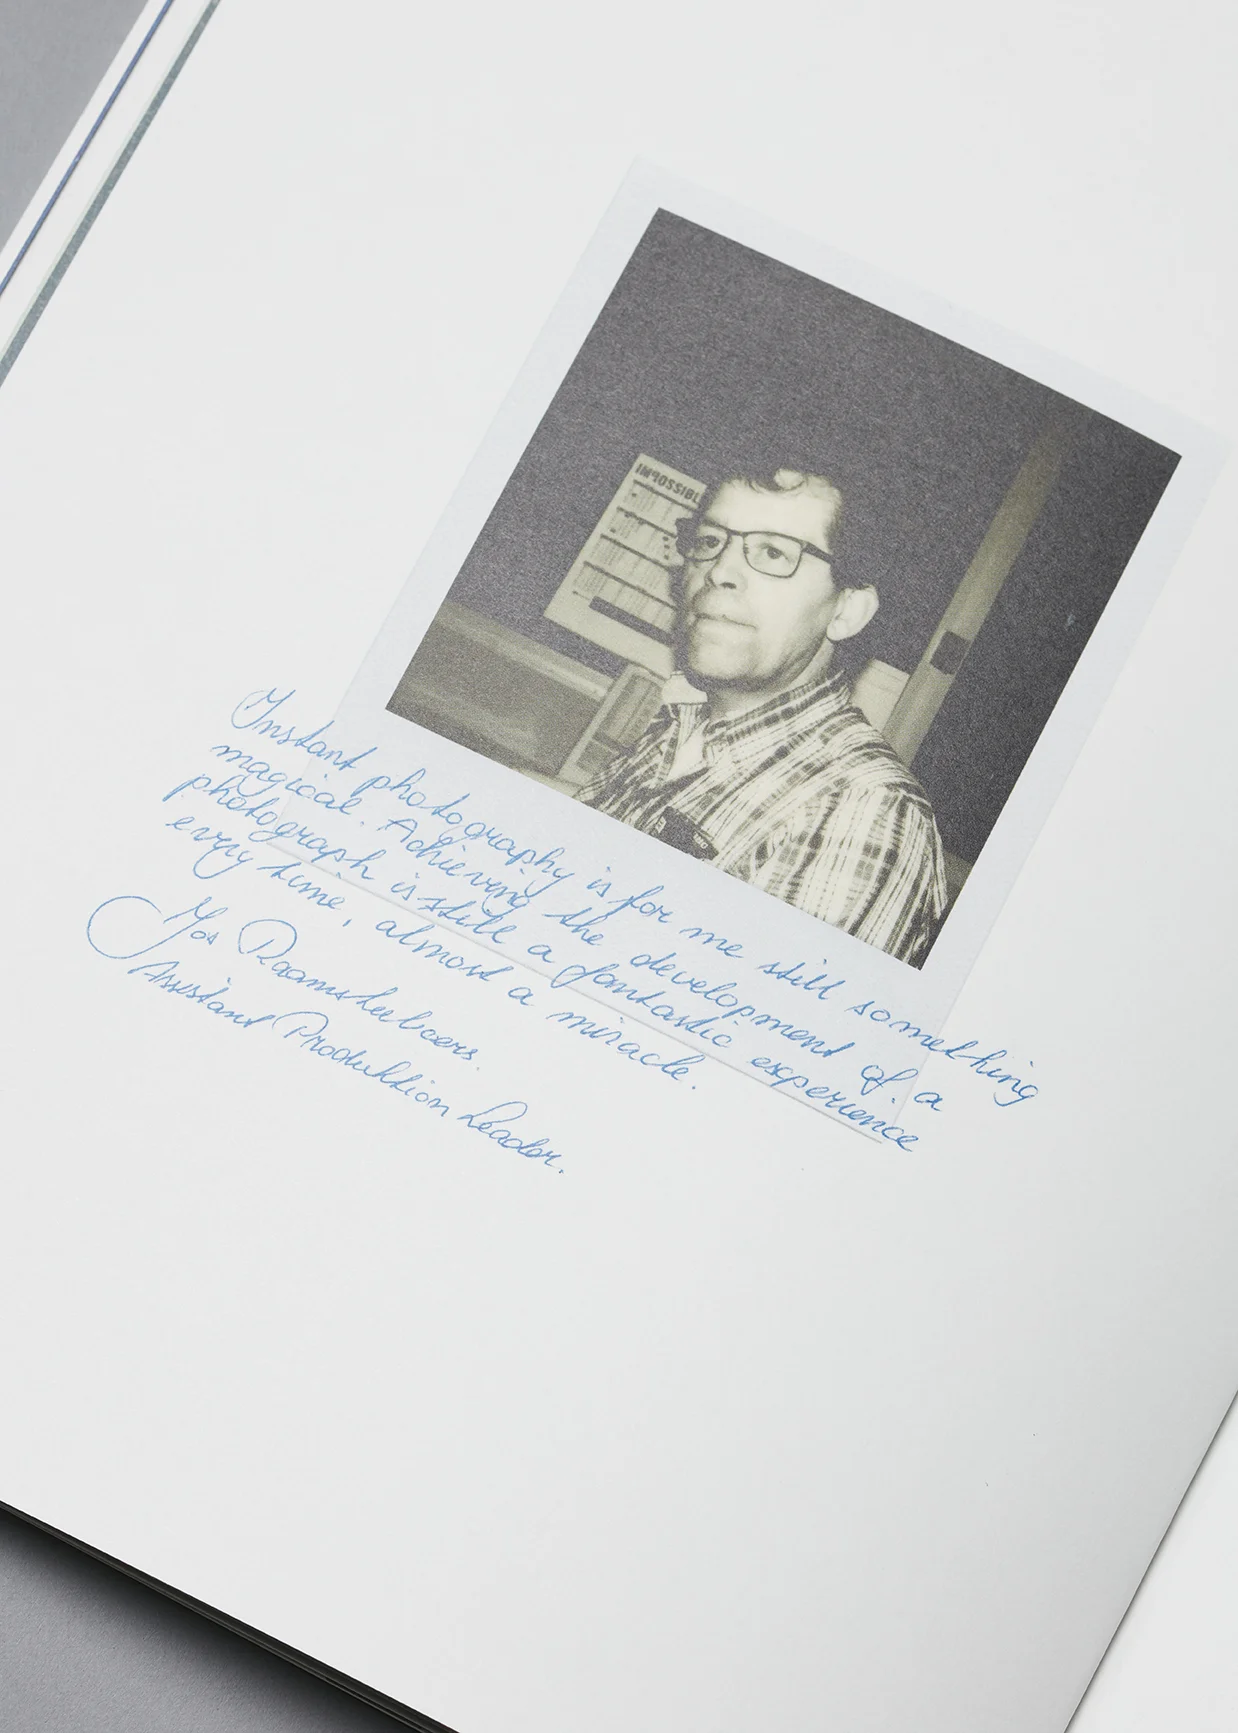 IMPOSSIBL
Instant photography is for me still something
magical. Achieving the development of a
photograph is still a fantastic experience
every time, almost a miracle.
Jos
Assistant Produktion Leader.